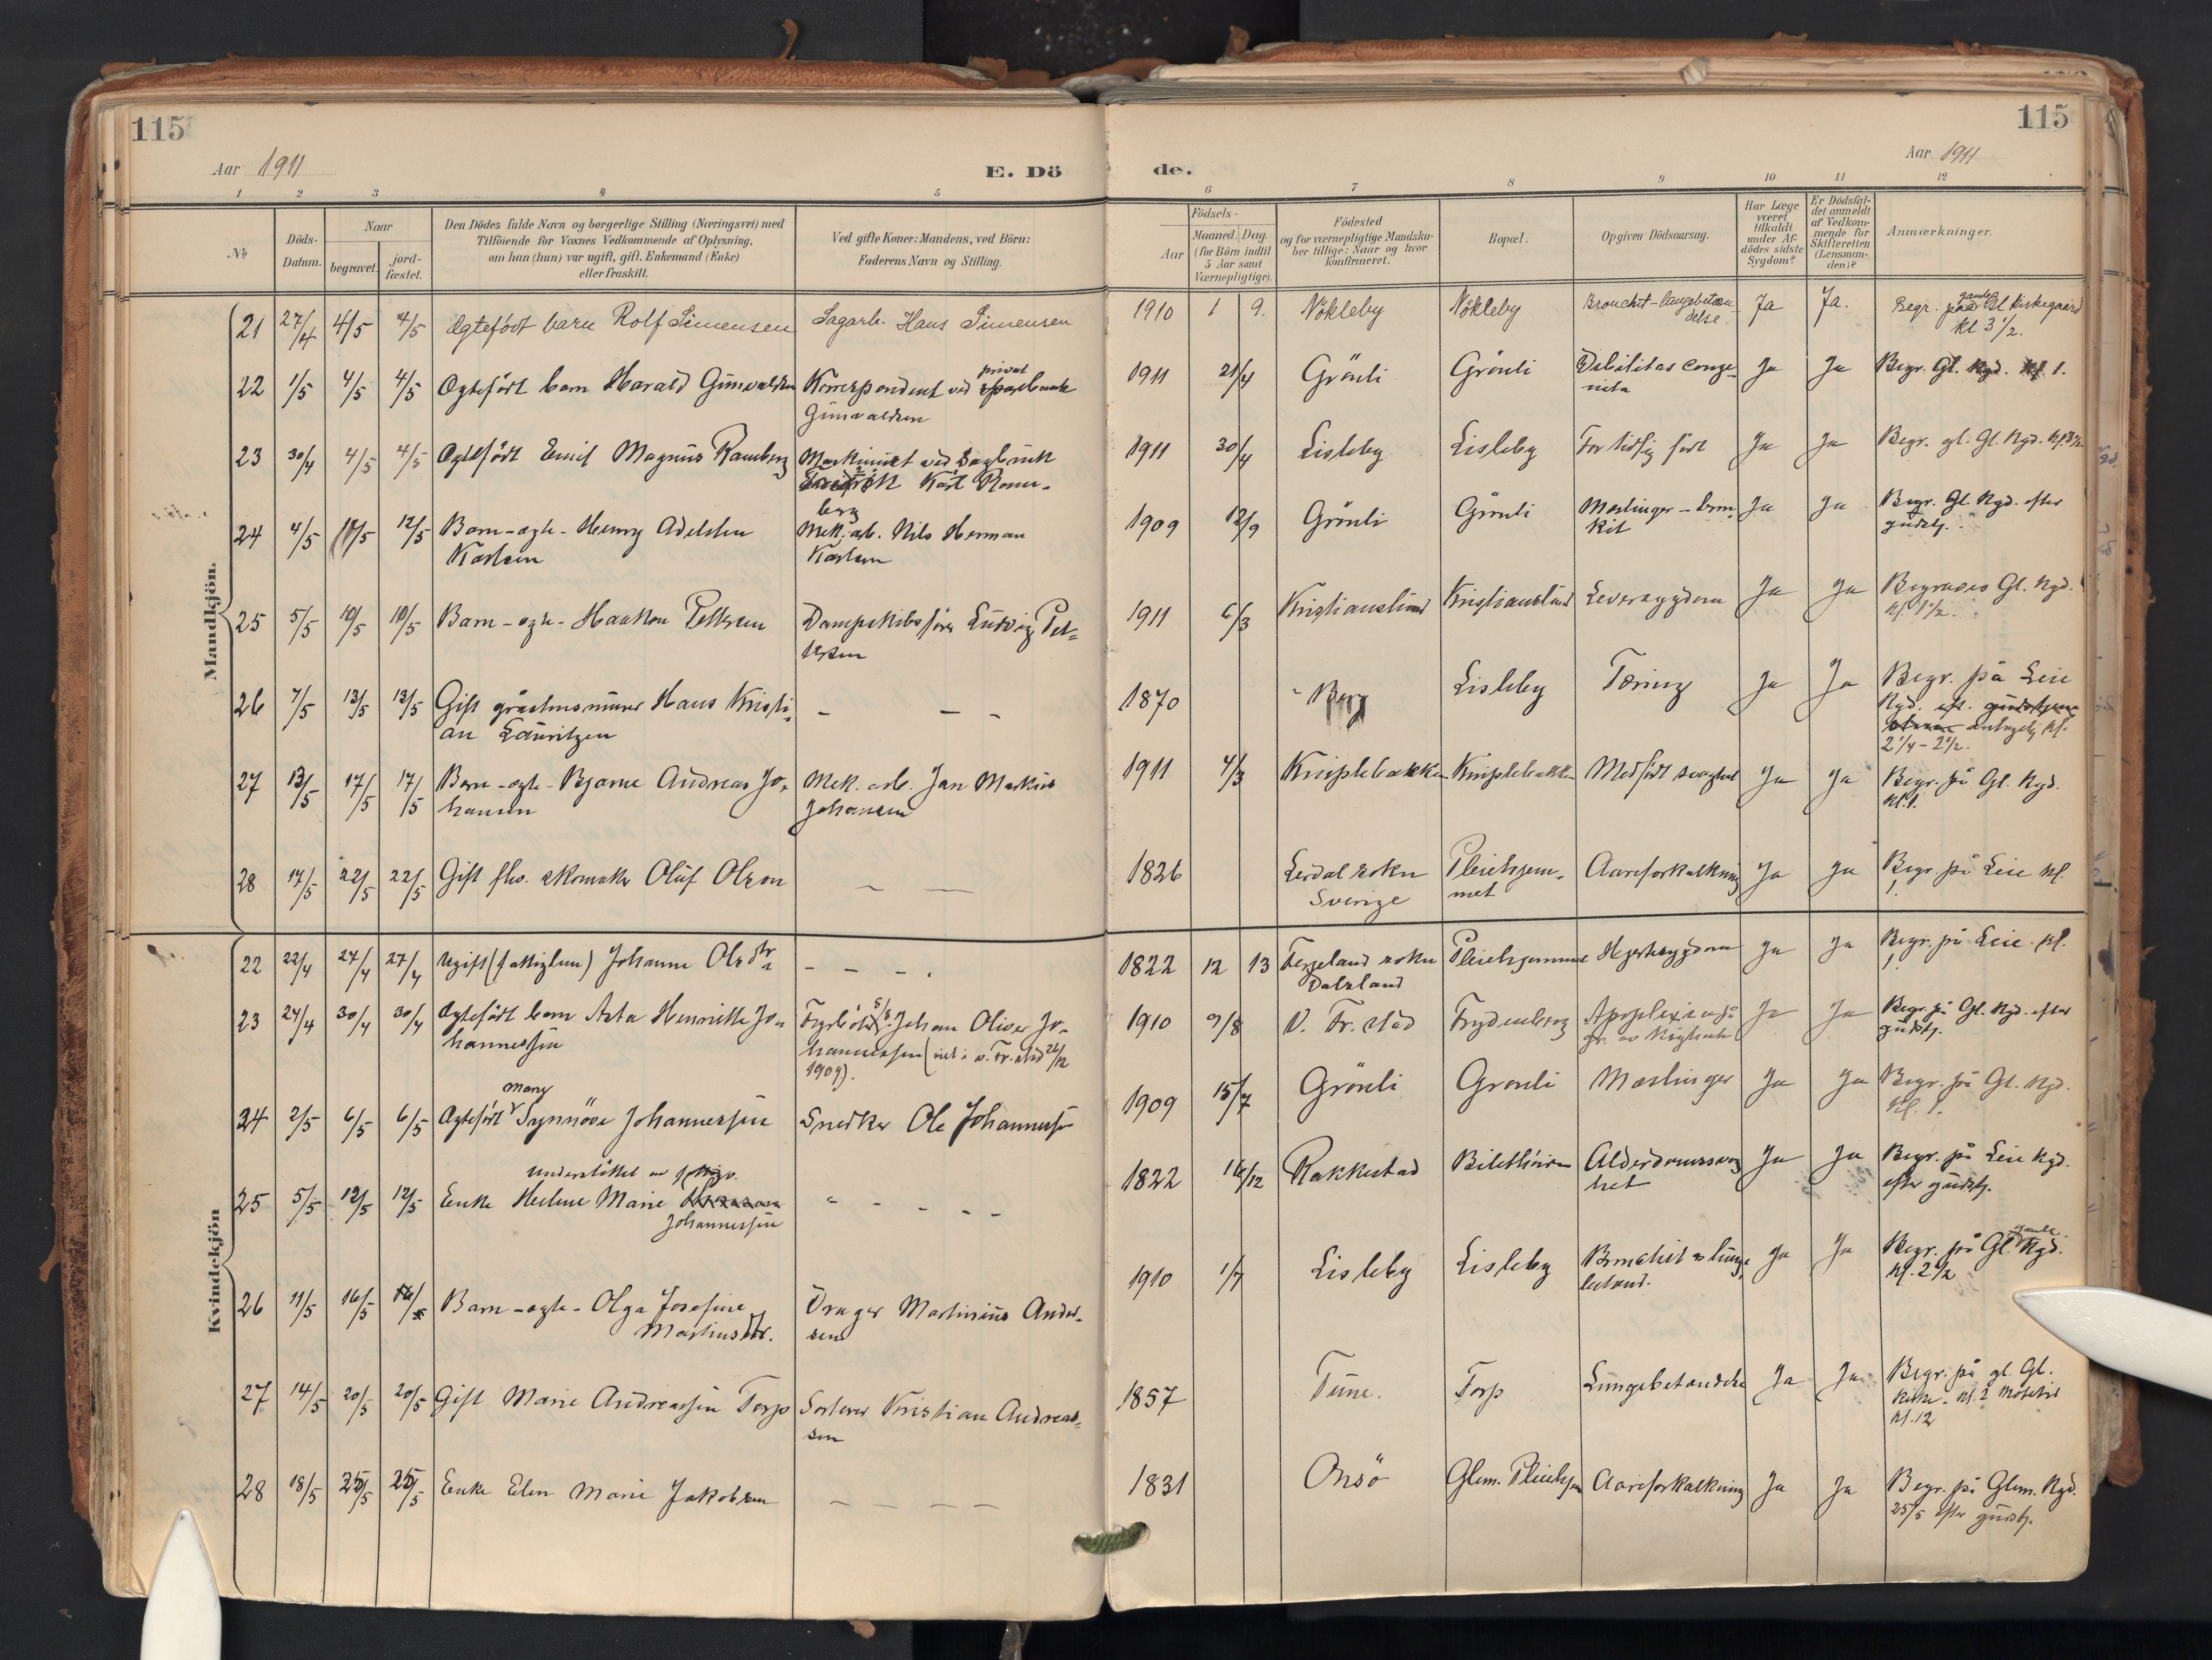 115
Aar 1911
E. Dö
1 2 3 4 5
№
Döds-
Datum.
Naar
begravet.
jord-
fæstet.
Den Dödes fulde Navn og borgerlige Stilling (Næringsvei) med
Tilföiende for Voxnes Vedkommende af Oplysning,
om han (hun) var ugift, gift, Enkemand (Enke)
eller fraskilt.
Ved gifte Koner: Mandens, ved Börn:
Faderens Navn og Stilling.
Mandkjön.
21 27/4 4/5 4/5 Ægtefödt barn Rolf Simensen Sagarb. Hans Simensen
22 1/5 4/5 4/5 Ægtefödt barn Harald Gunvaldsen Korrespondent ved privat
Gunvaldsen
23 30/4 4/5 4/5 Ægtefödt Emil Magnus Ramberg Maskinist ved Sagbruk
Karl Ram-
berg
24 4/5 12/5 Barn-ægte-Henry Adelsten Mek. arb. Nils Herman
Karlsen Karlsen
25 5/5 10/5 10/5 Barn-ægte-Haakon Pettersen Dampskibsförer Ludvig Pet-
tersen
26 7/5 13/5 13/5 Gift gråstensmurer Hans Kristi- - - -
an Lauritzen
27 13/5 17/5 17/5 Barn-ægte-Bjarne Andreas Jo- Mek. arb. Jan Markus
hansen Johansen
28 17/5 22/5 22/5 Gift fhv. skomaker Oluf Olson - -
Kvindekjön
22 22/4 27/4 27/4 Ugift (fattiglem) Johanne Olsdtr - - -
23 24/4 30/4 30/4 Ægtefödt barn Asta Henriette Jo- Fyrböter Johan Oliver Jo-
hannessen hannessen (viet i v. Fr.stad 26/12
1909).
Mary
24 2/5 6/5 6/5 Ægtefödt Synnöve Johannessen Snedker Ole Johannessen
Understöttet av fattigv.
25 5/5 12/5 12/5 Enke Helene Marie - - - - -
Johannessen
26 11/5 16/5 16/5 Barn-ægte-Olga Josefine Drager Martinius Ander-
Martinsdtr. sen
27 14/5 20/5 20/5 Gift Marie Andreassen Torp Sorterer Kristian Andreas-
sen
28 18/5 25/5 25/5 Enke Elen Marie Jakobsen - - - -
115
Aar 1911
de.
6 7 8 9 10 11 12
Födsels-
Aar
Maaned. Dag.
(for Börn indtil
5 Aar samt
Værnepligtige).
Födested
og for værnepligtige Mandska-
ber tillige: Naar og hvor
konfirmeret.
Bopæl.
Opgiven Dödsaarsag.
Har Læge
været
tilkaldt
under Af-
dödes sidste
Sygdom?
Er Dödsfal-
det anmeldt
af Vedkom-
mende for
Skifteretten
(Lensman-
den)?
Anmærkninger.
1910 1 9. Nökleby Nökleby Bronchit-lungebetæn- Ja Ja. Begr. paa gamle Gl. kirkegaard
delse. kl 3 1/2.
1911 21/4 Grönli Grönli Debilitas conge- Ja Ja Begr. Gl. Kgd. kl. 1.
nita
1911 30/4 Lisleby Lisleby For tidlig födt Ja Ja Begr. gl. Gl. Kgd. kl. 3 1/2
1909 12/9 Grönli Grönli Meslinger - bron- Ja Ja Begr. Gl. Kgd. efter
kit gudstj.
1911 6/3 Kristianslund Kristianslund Leversygdom Ja Ja Begraves Gl. Kgd.
kl. 1 1/2.
1870 Berg Lisleby Tæring Ja Ja Begr. på Leie
Kgd.
antagelig kl.
2 1/4 - 2 1/2.
1911 4/3 Kniplebakken Kniplebakken Medfödt svaghet Ja Ja Begr. på Gl. Kgd.
kl. 1.
1826 Lerdal sokn Pleiehjem- Aareforkalkning Ja Ja Begr på Leie kl.
Sverige met 1.
1822 12 13 Fergeland sokn Pleiehjemmet Hjertesygdom Ja Ja Begr. på Leie kl.
Dalsland 1.
1910 9/8 V. Fr.stad Frydenberg Ja Ja Begr. på Gl. Kgd. efter
gudstj.
1909 15/7 Grönli Grönli Mæslinger Ja Ja Begr. på Gl. Kgd.
kl. 1.
1822 16/12 Rakkestad Alderdomssvag- Ja Ja Begr. på Leie Kgd.
het efter gudstj.
1910 1/7 Lisleby Lisleby Bronchit & lunge- Ja Ja Begr. på Gl. gamle Kgd.
betænd. kl. 2 1/2
1857 Tune. Torp Lungebetændelse Ja Ja Begr. på gl. Gl.
Kirke- kl. 2 mötetid
kl. 12
1831 Onsö Glem. Pleiehjem Aareforkalkning Ja Ja Begr. på Glem. Kgd.
25/5 efter gudstj.